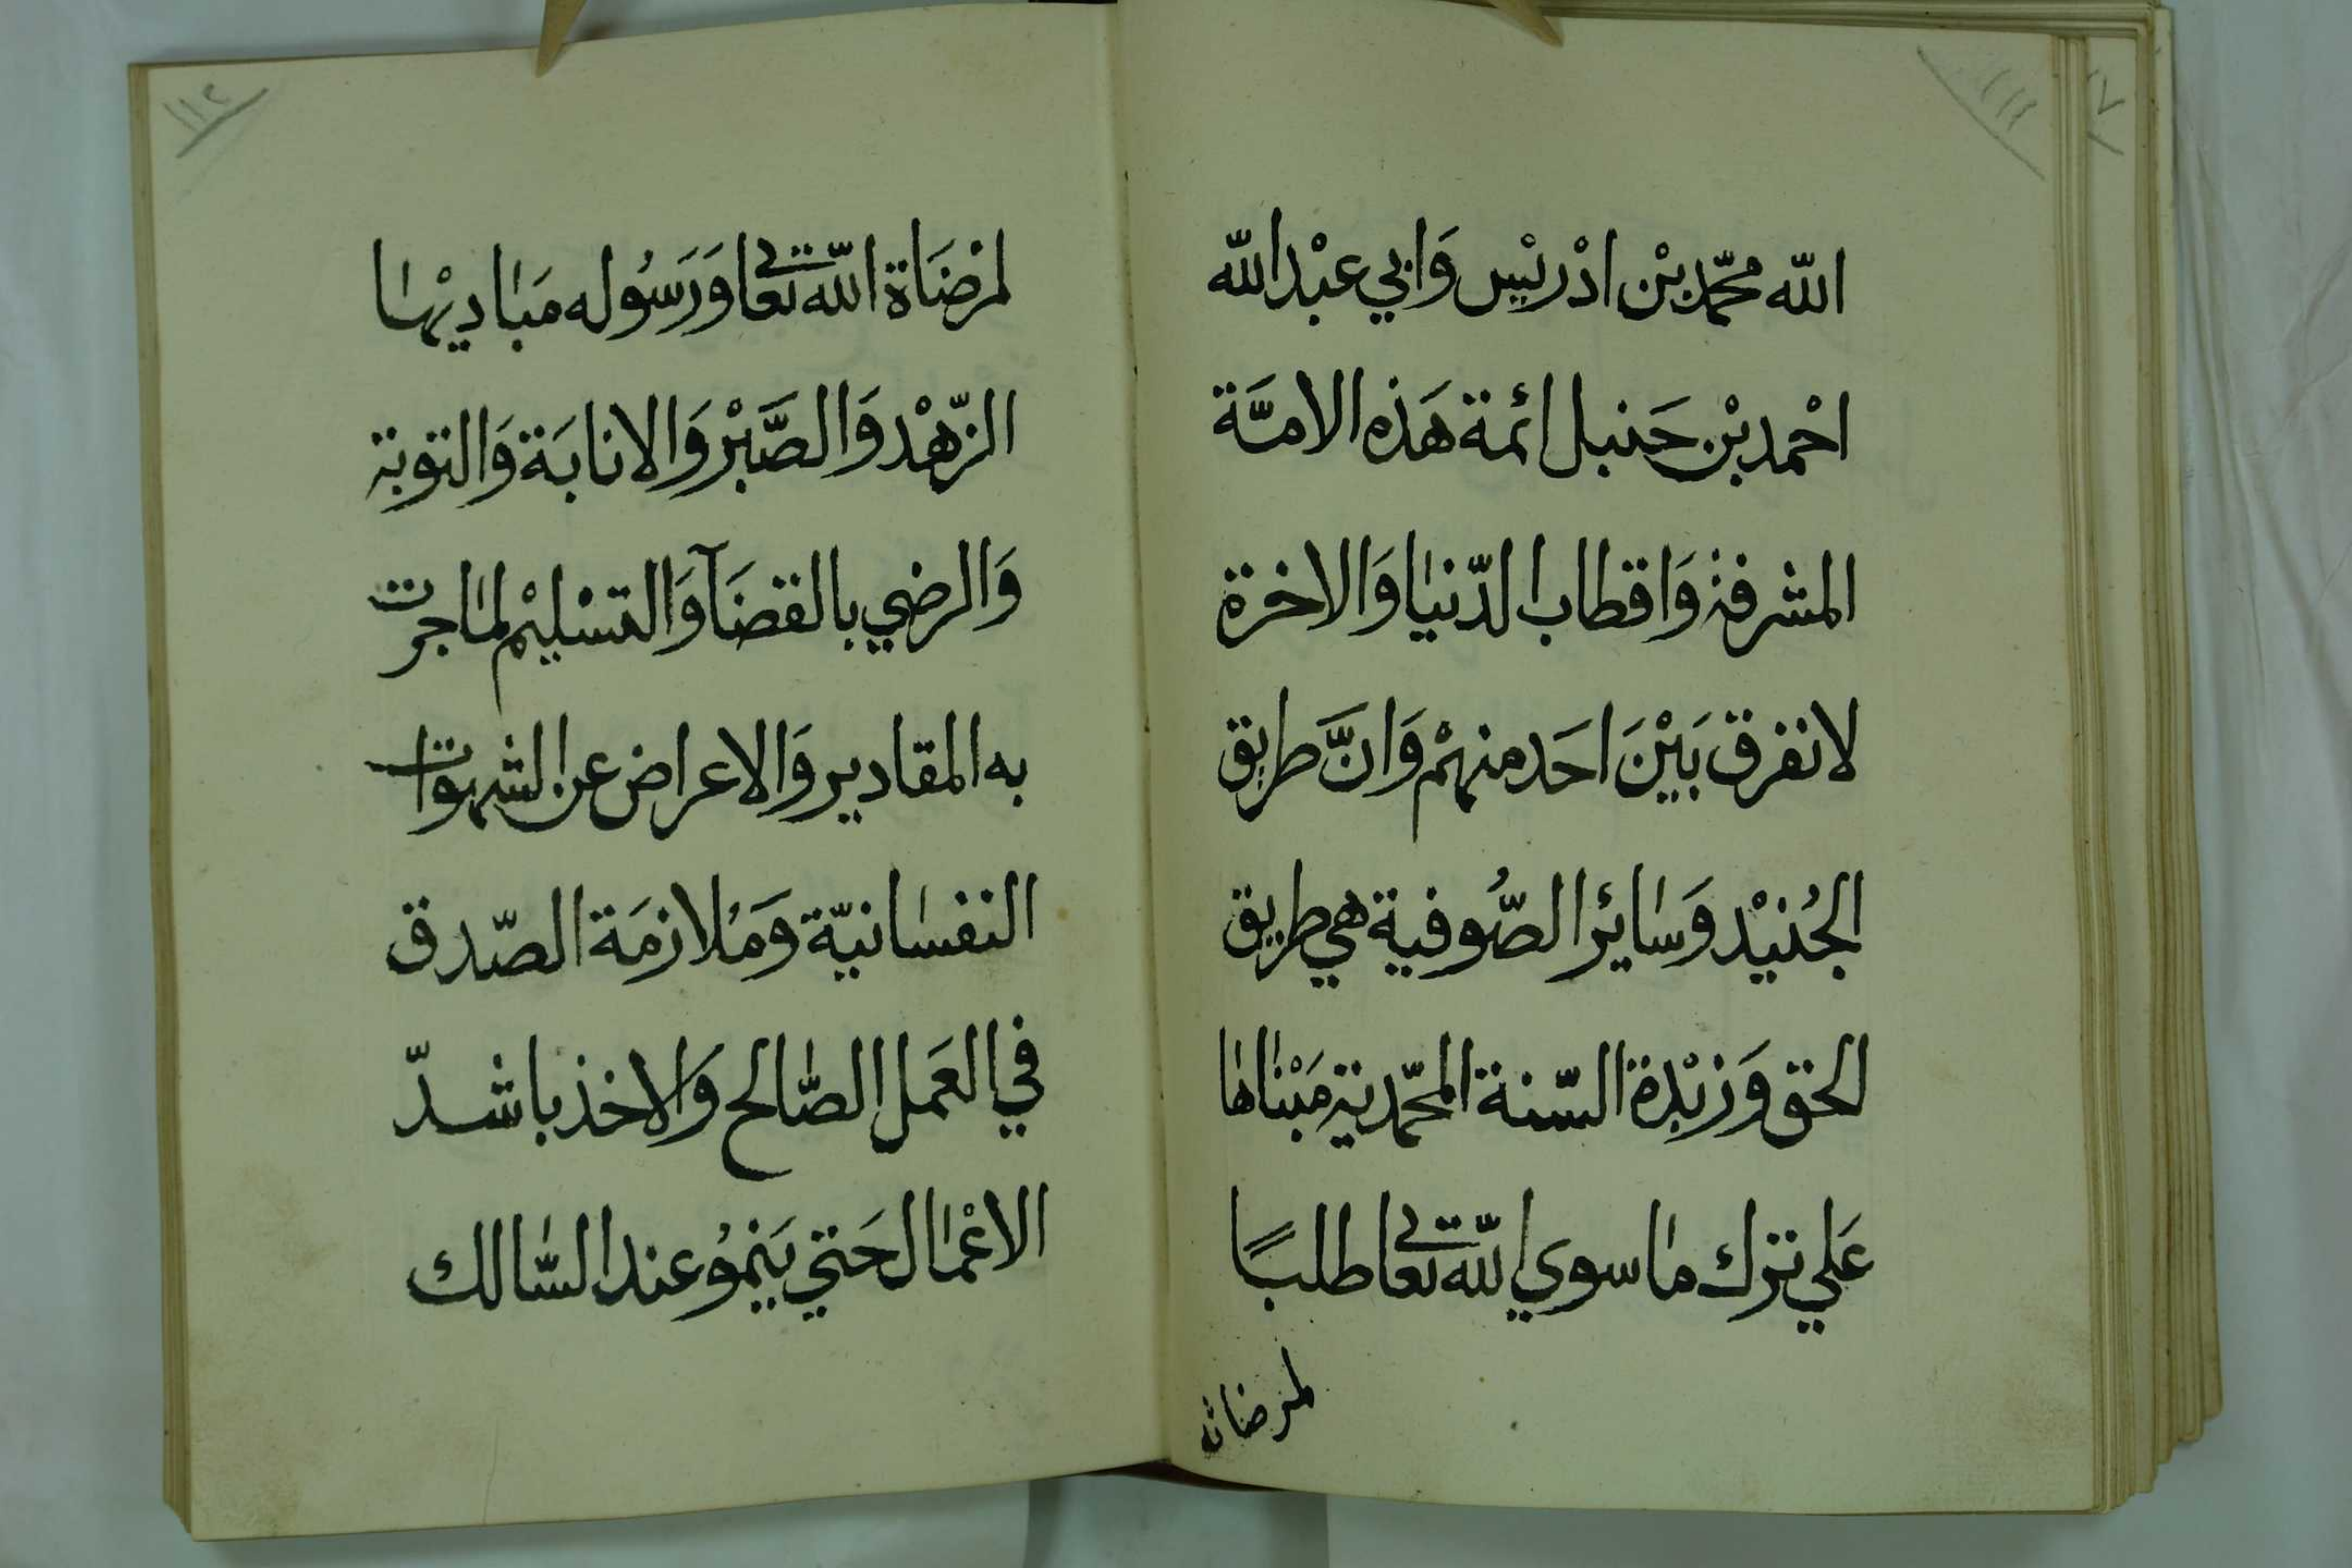 ١١١
الله محمّد بْن ادْريْس وَابي عبْد الله
احْمد بْن حَنبل ائمة هَذه الامَّة
المشرفة وَاقطاب الدّنيا وَالاخرة
لا نفرق بَيْنَ احَد منهمْ وَانَّ طريق
الجُنيْد وَسَايئر الصُّوفية هي طريق
الحق وَزبْدة السّنة المحمّدية مَبْناها
عَلي ترك ما سوي الله تعالى طلبًا
لمرضاته
١١٢
لمرْضَاة الله تعالى وَرَسُوله مَباديْها
الزّهْد وَالصَّبْر وَالانابَة وَالتوبة
وَالرضي بالقضَآ وَالتسْليْم لما جرت
به المقادير وَالاعراض عن الشهوات
النفسانيّة وَمُلازمَة الصّدق
في العَمل الصّالح وَالاخذ باشدّ
الاعْمال حَتي يَنموُ عند السّالك